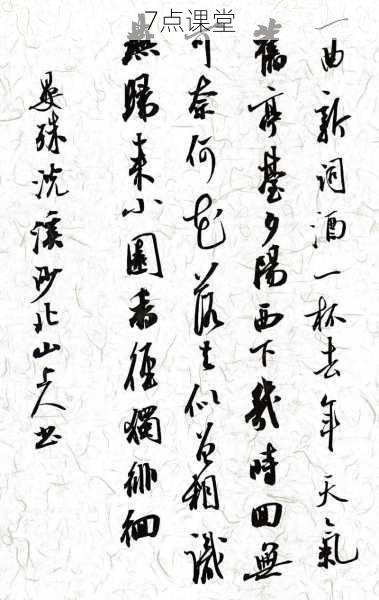 7点课堂
一曲新詞酒一杯去年天氣
舊亭臺夕陽西下幾時回無
可奈何花落去似曾相識
燕歸來小園香徑獨徘徊
晏殊浣溪沙北山上人书